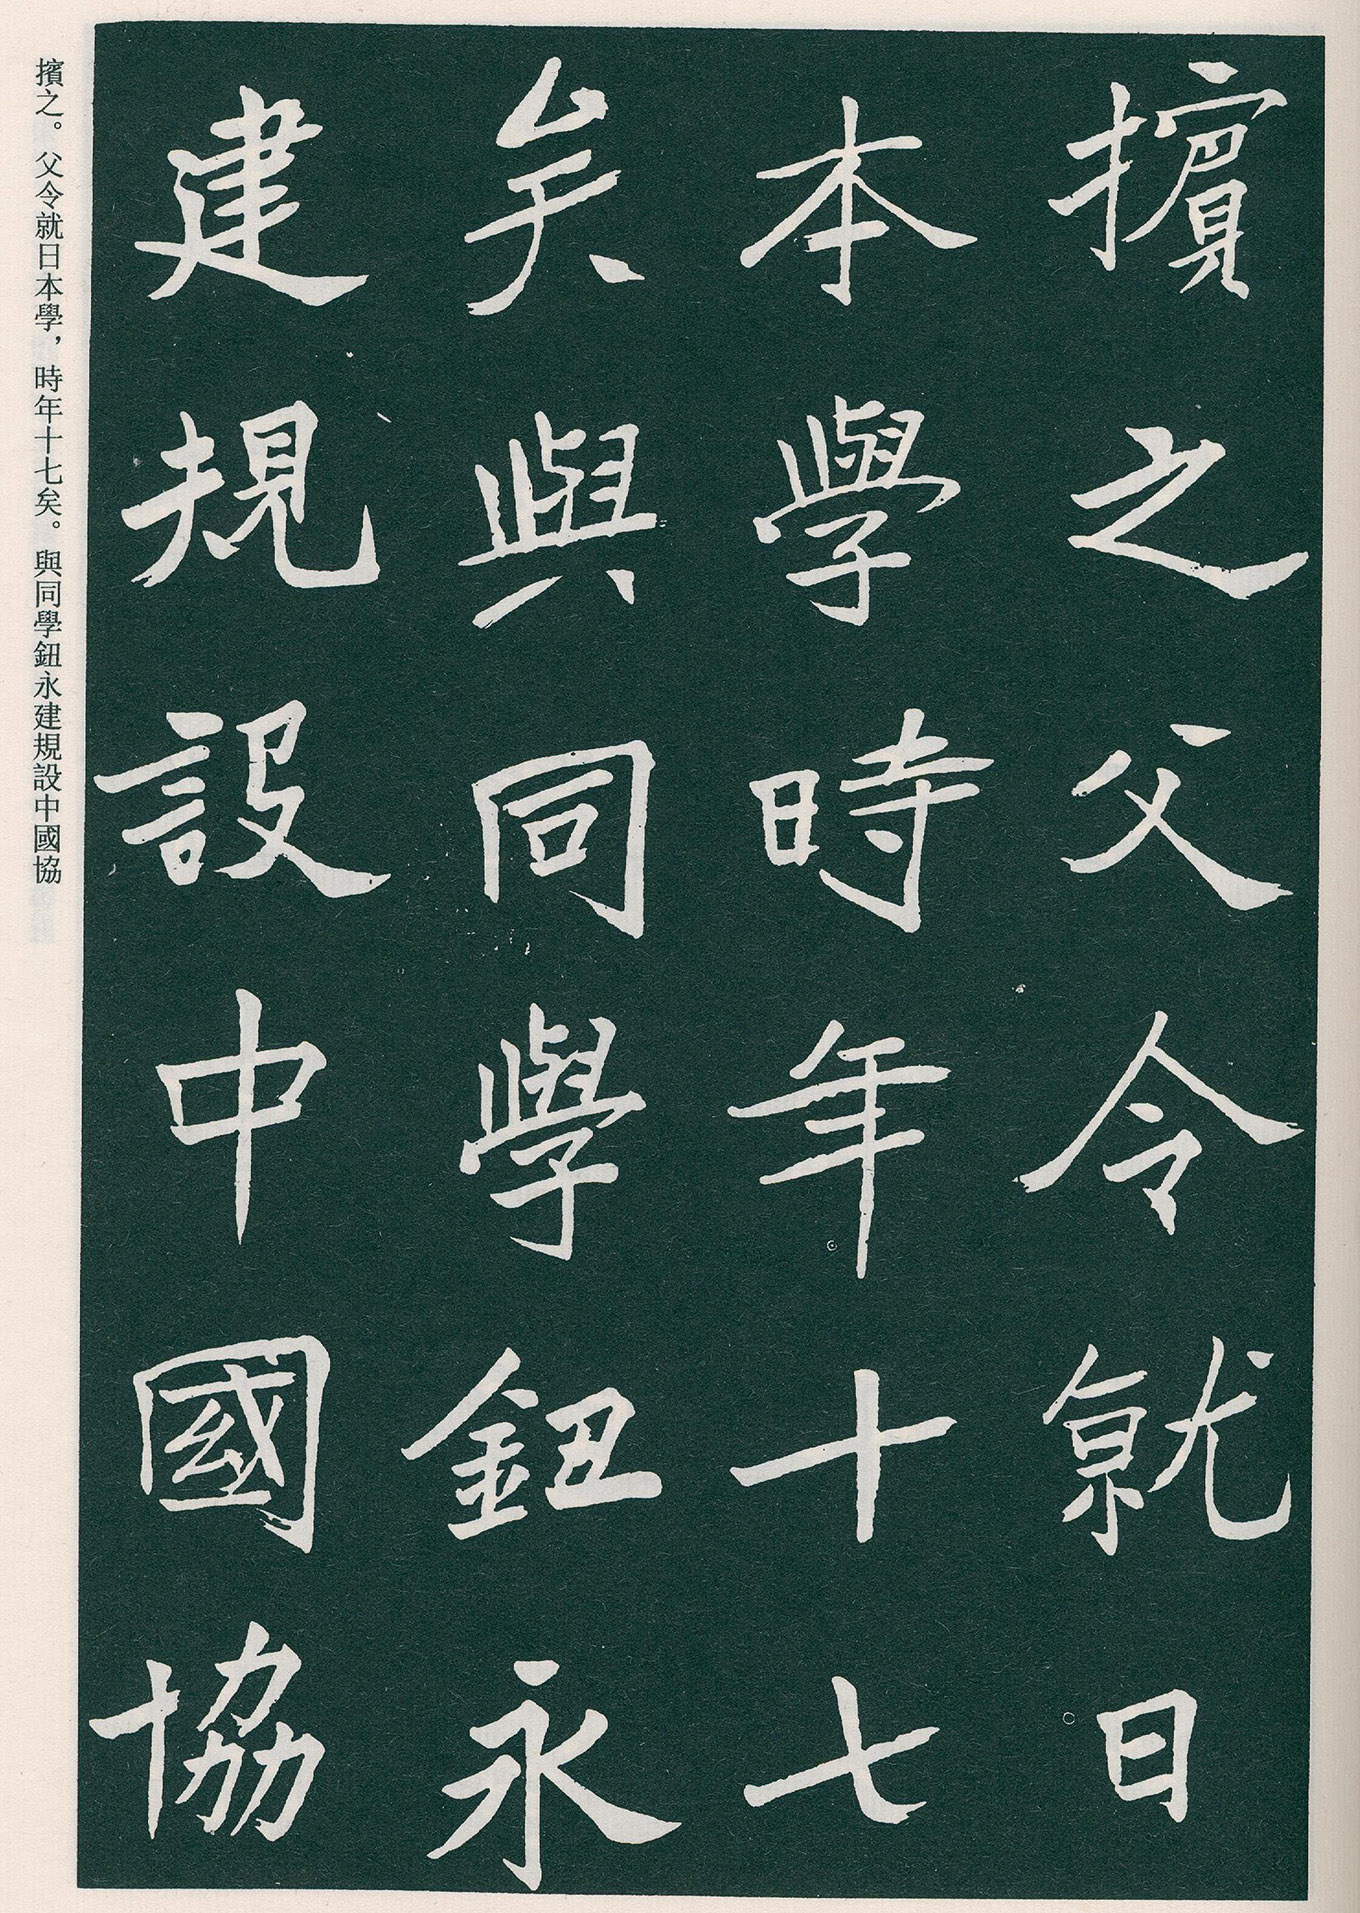 擯之父令就日
本學時年十七
矣與同學鈕永
建規設中國協
擯之。父令就日本學，時年十七矣。與同學鈕永建規設中國協